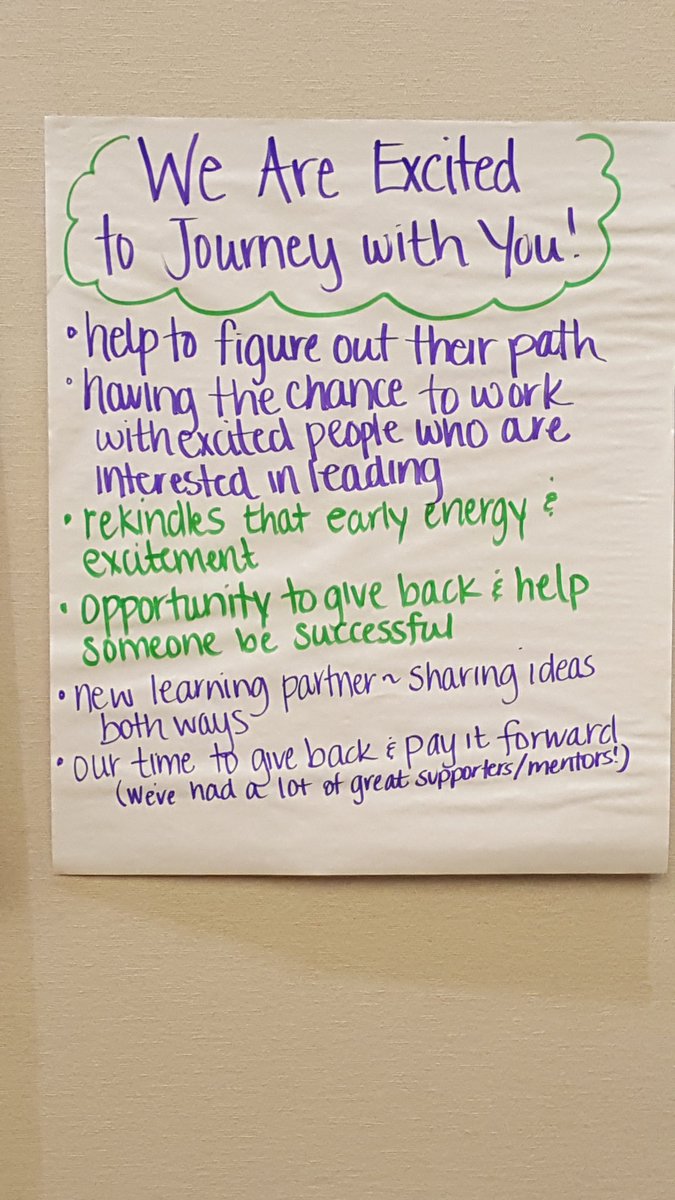 We Are Excited
to Journey with You!
• help to figure out their path
• having the chance to work
with excited people who are
interested in leading
• rekindles that early energy &
excitement
• opportunity to give back & help
someone be successful
• new learning partner ~ sharing ideas
both ways
• our time to give back & pay it forward
(We've had a lot of great supporters/mentors!)